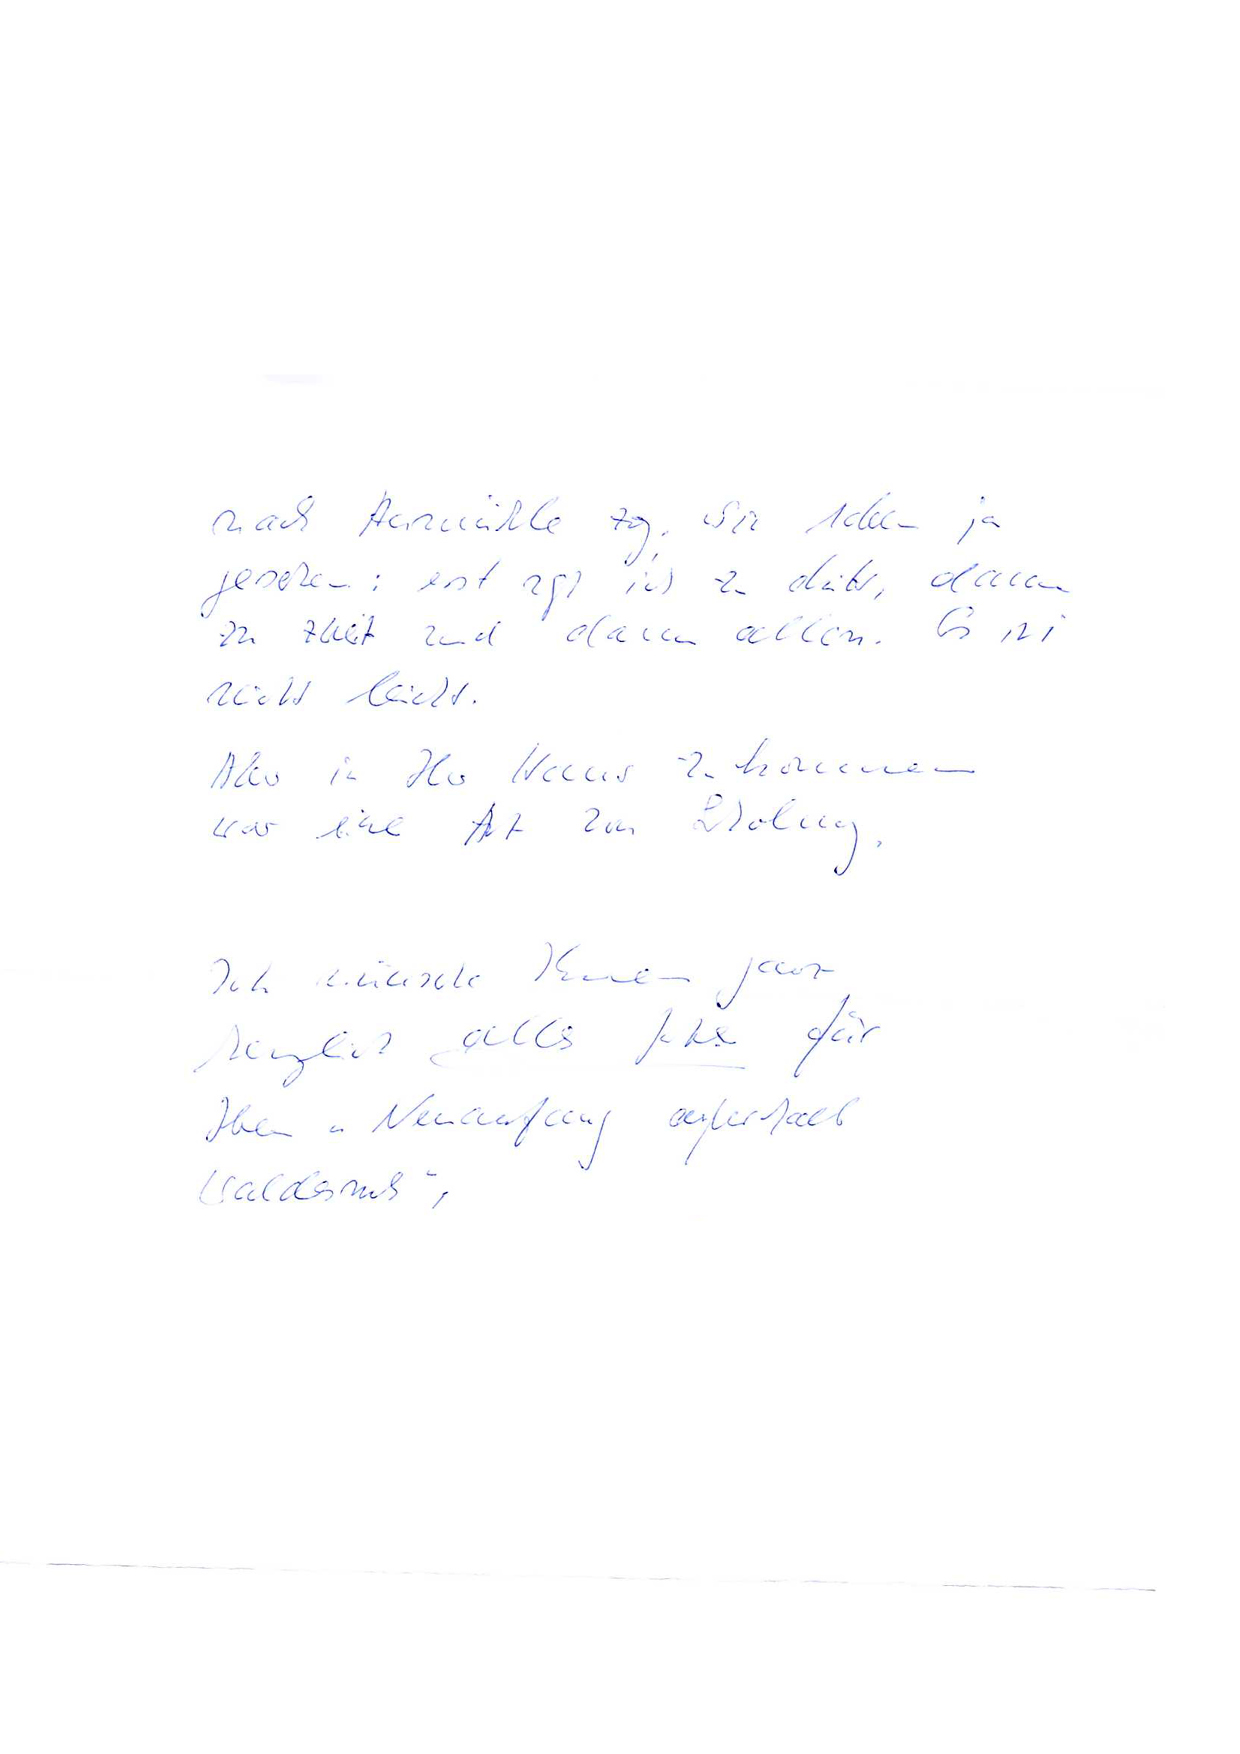 nach zog. Wir haben ja
gesehen: erst zog ich zu dritt, dann
zu zweit und dann allein. Es ist
nicht leicht.
Also in Ihr Haus zu kommen
war eine Art von Erholung.
Ich wünsche Ihnen ganz
herzlich alles Gute für
Ihren Neuanfang außerhalb